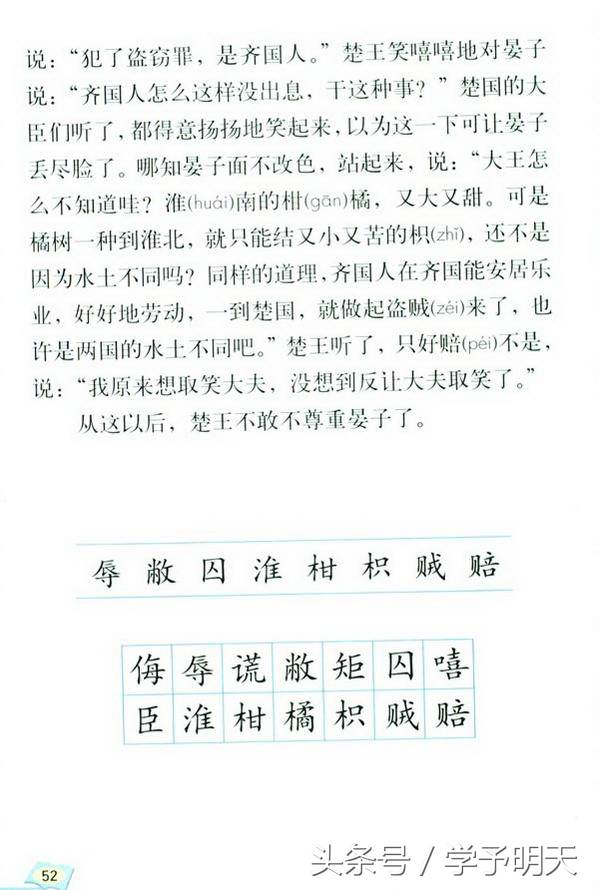 说：“犯了盗窃罪，是齐国人。”楚王笑嘻嘻地对晏子
说：“齐国人怎么这样没出息，干这种事？”楚国的大
臣们听了，都得意扬扬地笑起来，以为这一下可让晏子
丢尽脸了。哪知晏子面不改色，站起来，说：“大王怎
么不知道哇？淮(huái)南的柑(gān)橘，又大又甜。可是
橘树一种到淮北，就只能结又小又苦的枳(zhǐ)，还不是
因为水土不同吗？同样的道理，齐国人在齐国能安居乐
业，好好地劳动，一到楚国，就做起盗贼(zéi)来了，也
许是两国的水土不同吧。”楚王听了，只好赔(péi)不是，
说：“我原来想取笑大夫，没想到反让大夫取笑了。”
从这以后，楚王不敢不尊重晏子了。
辱 敝 囚 淮 柑 枳 贼 赔
侮 辱 谎 敝 矩 囚 嘻
臣 淮 柑 橘 枳 贼 赔
52
头条号 / 学予明天